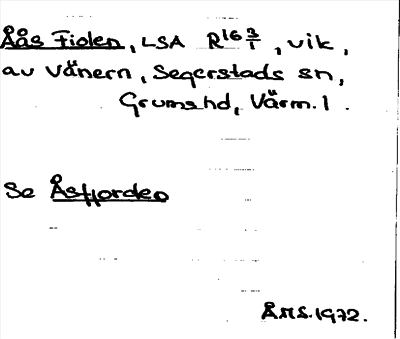 Åås Fiolen, LSA R16 3/1, vik,
av Vänern, Segerstads sn,
Grums hd, Värm. l.
Se Åsfjorden
Å.M.S. 1972.